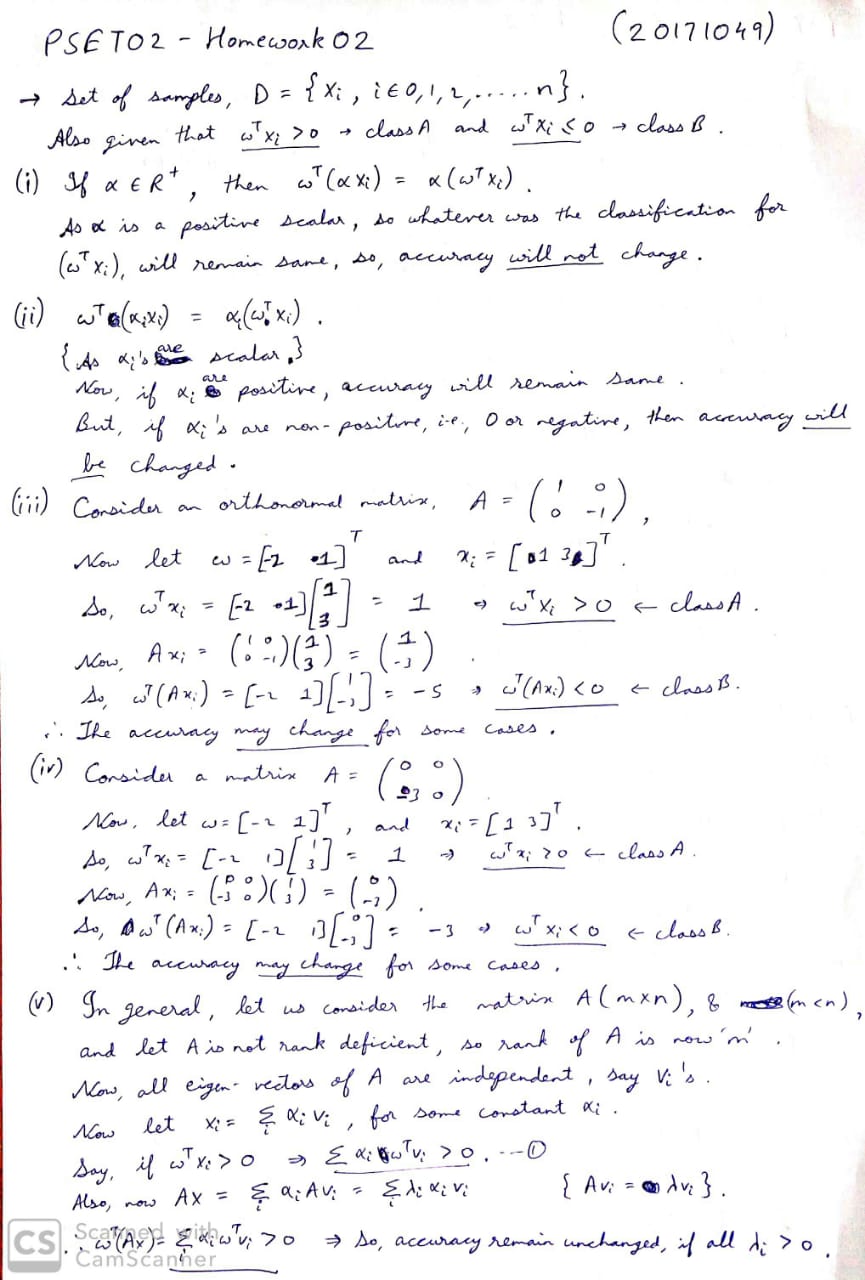 PSET02 - Homework 02 (20171049)
→ Set of samples, D = {xᵢ, i ∈ 0, 1, 2, ..... n}.
Also given that ωᵀxᵢ > 0 → class A and ωᵀxᵢ ≤ 0 → class B.
(i) If α ∈ R⁺, then ωᵀ(αxᵢ) = α(ωᵀxᵢ).
As α is a positive scalar, so whatever was the classification for
(ωᵀxᵢ), will remain same, so, accuracy will not change.
(ii) ωᵀ(αᵢxᵢ) = αᵢ(ωᵀxᵢ).
{As αᵢ's are scalar,}
Now, if αᵢ are positive, accuracy will remain same.
But, if αᵢ's are non-positive, i.e., 0 or negative, then accuracy will
be changed.
(iii) Consider an orthonormal matrix, A = (1 0; 0 -1),
Now let ω = [-2 1]ᵀ and xᵢ = [1 3]ᵀ.
So, ωᵀxᵢ = [-2 1][1; 3] = 1 ⇒ ωᵀxᵢ > 0 ← class A.
Now, Axᵢ = (1 0; 0 -1)(1; 3) = (1; -3).
So, ωᵀ(Axᵢ) = [-2 1][1; -3] = -5 ⇒ ωᵀ(Axᵢ) < 0 ← class B.
∴ The accuracy may change for some cases.
(iv) Consider a matrix A = (0 0; -3 0)
Now, let ω = [-2 1]ᵀ, and xᵢ = [1 3]ᵀ.
So, ωᵀxᵢ = [-2 1][1; 3] = 1 ⇒ ωᵀxᵢ > 0 ← class A.
Now, Axᵢ = (0 0; -3 0)(1; 3) = (0; -3).
So, ωᵀ(Axᵢ) = [-2 1][0; -3] = -3 ⇒ ωᵀxᵢ < 0 ← class B.
∴ The accuracy may change for some cases.
(v) In general, let us consider the matrix A(m×n), & (m<n),
and let A is not rank deficient, so rank of A is now 'm'.
Now, all eigen-vectors of A are independent, say Vᵢ's.
Now let xᵢ = Σᵢ αᵢVᵢ, for some constant αᵢ.
Say, if ωᵀxᵢ > 0 ⇒ Σ αᵢωᵀvᵢ > 0. --①
Also, now AX = Σᵢ αᵢAvᵢ = Σᵢ λᵢαᵢvᵢ {Avᵢ = λvᵢ}.
∴ ωᵀ(Ax) = Σᵢ αᵢωᵀvᵢ > 0 ⇒ So, accuracy remain unchanged, if all λᵢ > 0.
CS Scanned with
CamScanner